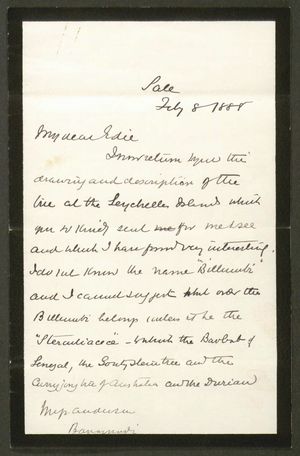 Sale
Feby 8 1888
My dear Edie
I now return you the
drawing and description of the
tree at the Seychelles Islands which
you so kindly sent me for me to see
and which I have found very interesting.
I do not know the name "Billimbi"
and I cannot suggest what order the
Billimbi belongs unless it be the
"Sterculiacea" - to which the Baobab of
Senegal, the Gouty stem tree and the
Currajong tree of Australia and the Durian